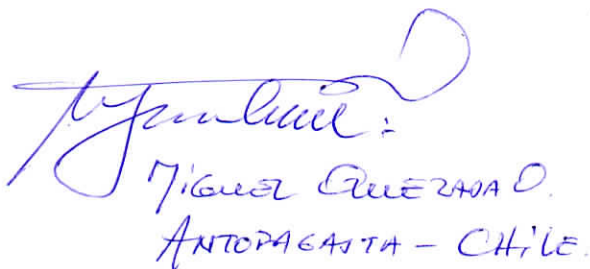 Miguel Quezada O.
ANTOFAGASTA - CHiLE.